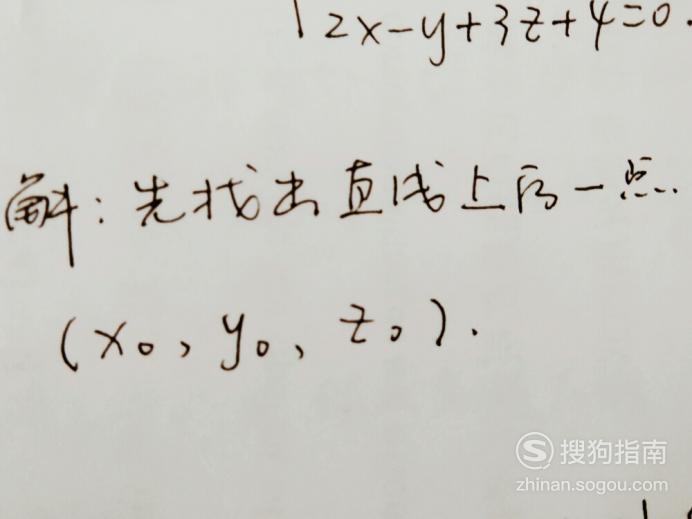 2x-y+3z+4=0.
解:先找出直线上的一点.
(x₀,y₀,z₀).
搜狗指南
zhinan.sogou.com